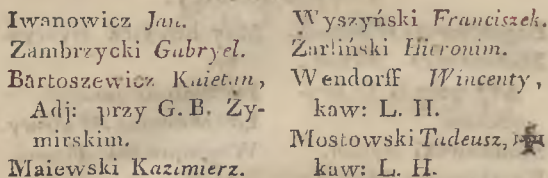 Iwanowicz Jan.
Zambrzycki Gabryel.
Bartoszewicz Kaietan,
Adj: przy G. B. Ży-
mirskim.
Maiewski Kazimierz.
Wyszyński Franciszek.
Żarliński Hieronim.
Wendorff Wincenty,
kaw: L. H.
Mostowski Tadeusz,
kaw: L. H.